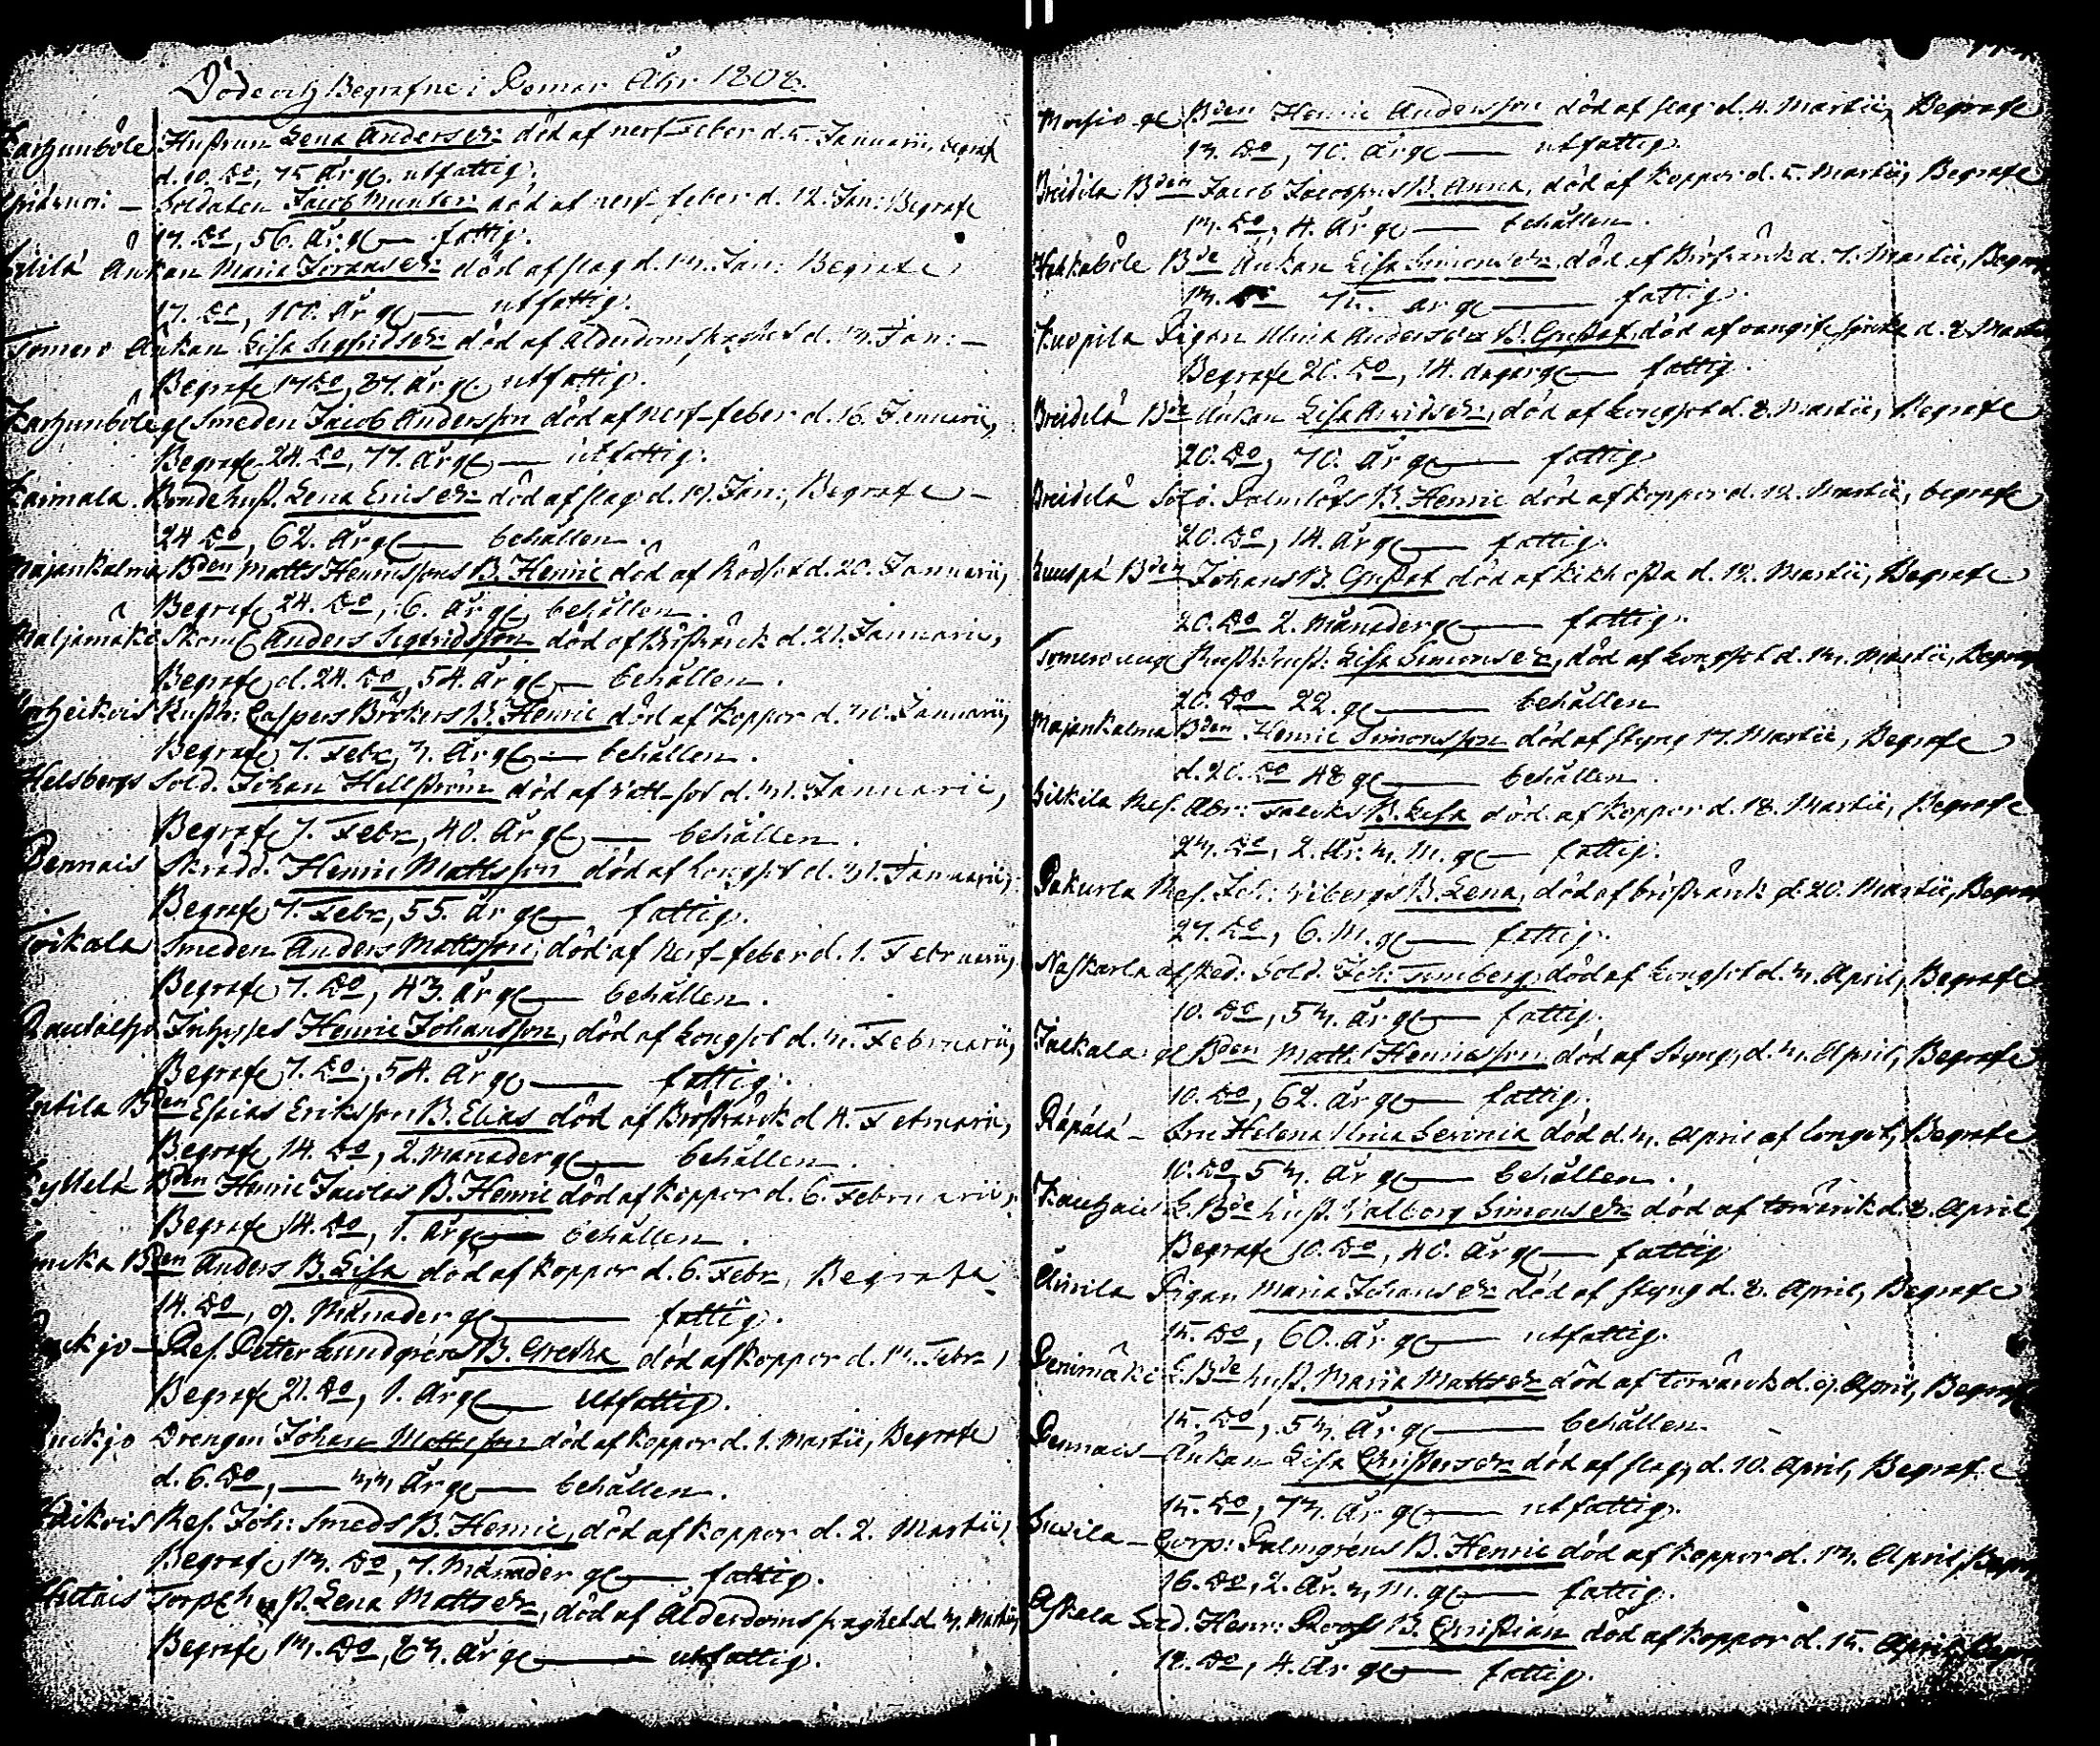 Döde och Begrafne i Pemar Åhr 1808.
Hustrun Lena Andersdr död af nerf-feber d. 5. Januarii, begraf
d. 10. Do, 75 År gl. utfattig.
Soldaten Jacob Munter död af nerf-feber d. 12. Jan: Begrafe
17. Do, 56. År gl — fattig.
Änkan Maria Jöransdr död af slag d. 13. Jan: Begrafe
17. Do, 100. År gl — utfattig.
Änkan Lisa Sigfridsdr död af Ålderdoms svaghet d. 13. Jan: —
Begrafe 17 Do, 87. År gl utfattig.
gl smeden Jacob Andersson död af nerf-feber d. 16. Januarii,
Begrafe 24. Do, 77. År gl — utfattig.
Bondehust. Lena Ericsdr död af slag d. 19. Jan:, Begrafe —
24 Do, 62. År gl — behållen.
Majankalma Bden Matts Henricssons B. Henric död af Rödsot d. 20. Januarii,
Begrafe 24. Do, 6. År gl, behållen.
Anders Sigfridsson död af Bröstvärck d. 21. Januarii,
Begrafe d. 24. Do, 54. År gl — behållen.
Rusth: Caspers Brökers B. Henric död af Koppor d. 30. Januarii,
Begrafe 7. Febr, 3. År gl — behållen.
Helsbergs Sold. Johan Hellström död af Vatt-sot d. 31. Januarii,
Begrafe 7. Febr, 40. År gl — behållen.
Pemais Skrädd. Henric Mattsson död af Longsot d. 31. Januarii,
Begrafe 7. Febr, 55. År gl — fattig.
Toikala Smeden Anders Mattsson, död af Nerf-feber d. 1. Februarii,
Begrafe 7. Do, 43. År gl — behållen.
Inhyses Henric Johansson, död af Longsot d. 3. Februarii,
Begrafe 7. Do, 54. År gl — fattig.
Bden Esaias Eriksson B. Elias död af Bröstvärck d 4. Februarii,
Begrafe 14. Do, 2. Månader gl — behållen.
Bden Henric Jacobs B. Henric död af Koppor d. 6. Februarii,
Begrafe 14. Do, 1. År gl — behållen.
Bden Anders B. Lisa död af Koppor d. 6. Febr, Begrafe
14. Do, 9. Månader gl — fattig.
Ref. Petter Lundgréns B. Greta död af Koppor d. 13. Febr,
Begrafe 21. Do, 1. År gl — Utfattig.
Drengen Johan Mattsson död af Koppor d. 1. Martii, Begrafe
d. 6. Do, — 33 År gl — behållen.
Ref. Joh: Smeds B. Henric, död af Koppor d. 2. Martii,
Begrafe 13. Do, 7. Månader gl — fattig.
Torpe hust. Lena Mattsdr, död af Ålderdoms svaghet d. 3. Martii,
Begrafe 13. Do, 83. År gl — utfattig.
gl Bden Henric Andersson död af slag d. 4. Martii, Begrafe
13. Do, 70. År gl — utfattig.
Breidilä Bden Jacob Jacobssons B. Anna, död af Koppor d. 5. Martii, Begrafe
13. Do, 4. År gl — behållen.
Bde Änkan Lisa Simonsdr, död af Bröstvärck d. 7. Martii, Begraf
13. Do 75. år gl — fattig.
Kuopila Pigan Ulrica Andersdrs B. Gustaf, död af d. 8. Martii
Begrafe 20. Do, 14. dagar gl — fattig.
Breidilä Bde Änkan Lisa Arvidsdr, död af Longsot d. 8. Martii, Begrafe
20. Do, 70. År gl — fattig
Breidilä Sold. Palmlöfs B. Henric död af Koppor d. 12. Martii, begrafe
20. Do, 14. År gl — fattig.
Bden Johans B. Gustaf död af Kikhosta d. 12. Martii, Begrafe
20. Do 2. Månader gl — fattig.
Rusth: hust: Lisa Simonsdr, död af Longsot d. 13. Martii, Begraf
20. Do 22. gl — behållen
Majankalma Bden Henric Simonsson död af styng 17. Martii, Begrafe
d. 20. Do 48 gl — behållen.
Ref. Abr: Falcks B. Lisa död af Koppor d. 18. Martii, Begrafe
23. Do, 2. År. 3. M. gl — fattig.
Pakurla Ref. Joh: Vibergs B. Lena, död af bröstvärck d 20. Martii, Begraf
27. Do, 6. M. gl — fattig.
Naskarla afsked: Sold. Joh: Tumberg, död af Longsot d. 3. April, Begrafe
10. Do, 53. År gl — fattig.
gl Bden Matts Henricsson död af styng, d. 3. April, Begrafe
10. Do, 62. År gl — fattig.
Räpälä — Fru Helena Ulrica död d. 3. April af longsot, Begrafe
10. Do 53. År gl — behållen.
L. Bde hust. Valborg Simonsdr död af torrvärk d. 8. April
Begrafe 10. Do, 40. År gl — fattig
Pigan Maria Johansdr död af styng d. 8. April, Begrafe
15. Do, 60. År gl — utfattig.
L. Bde hust. Maria Mattsdr död af torrvärck d. 9. April, Begraf
15. Do, 53. År gl — behållen.
Pemais — Änkan Lisa Christersdr död af slag, d. 10. April, Begrafe
15. Do, 73. År gl — utfattig.
Corp: Palmgréns B. Henric död af Koppor d. 13. April, Begraf
16. Do, 2. År. 3. M. gl — fattig.
Askala Sold. Henr: Roos B. Christian död af Koppor d. 15. April, Begraf
18. Do, 4. År gl — fattig.